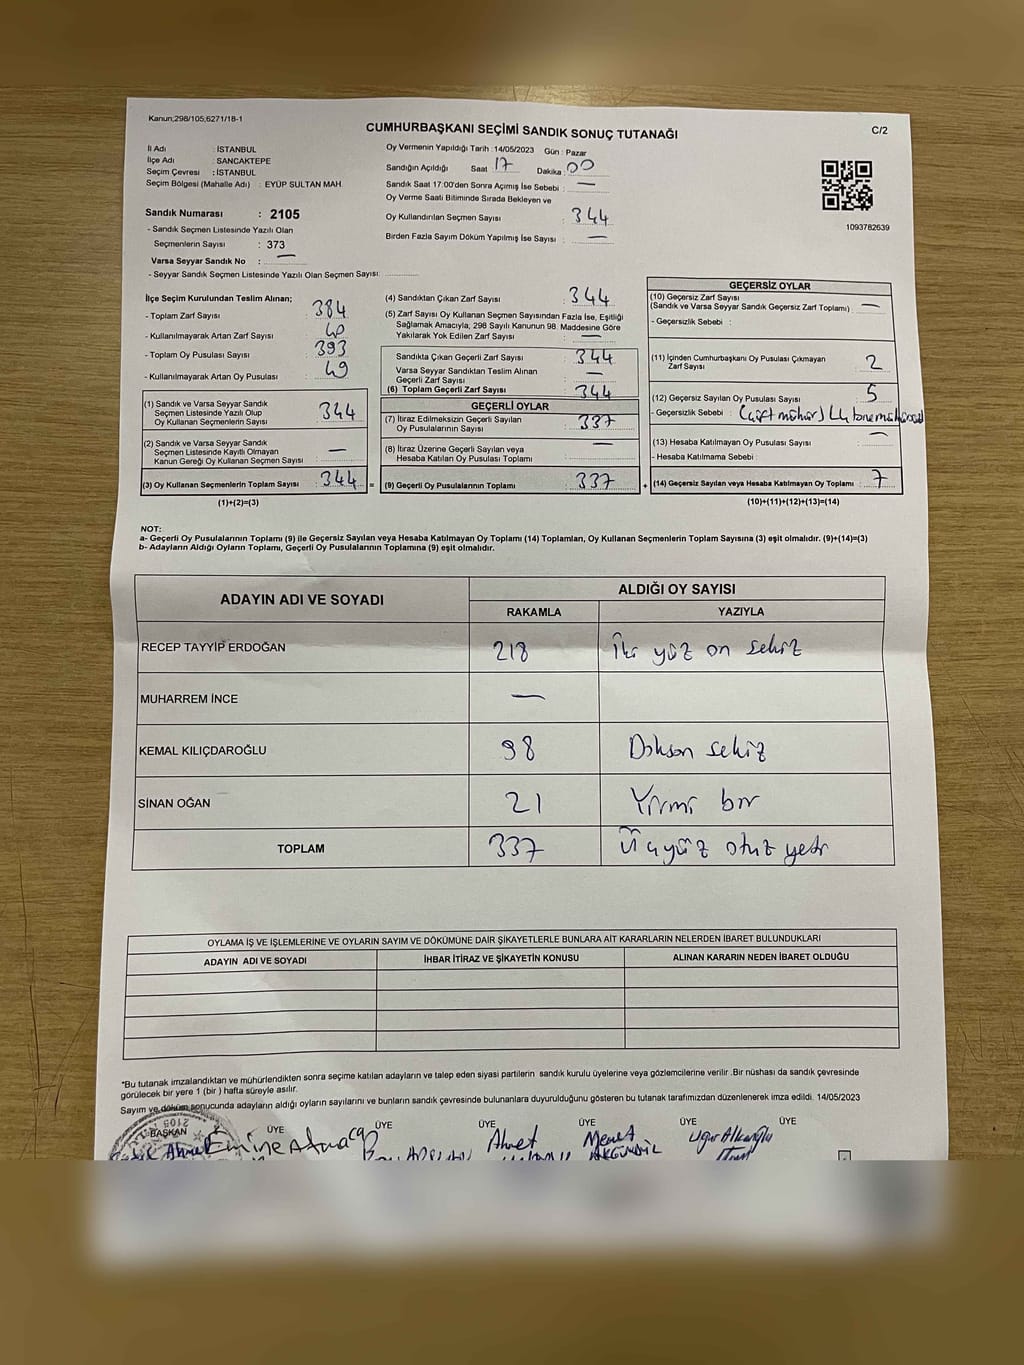 Kanun;298/105,6271/18-1
CUMHURBAŞKANI SEÇİMİ SANDIK SONUÇ TUTANAĞI
C/2
İl Adı : İSTANBUL
İlçe Adı : SANCAKTEPE
Seçim Çevresi : İSTANBUL
Seçim Bölgesi (Mahalle Adı) : EYÜP SULTAN MAH.
Sandık Numarası : 2105
- Sandık Seçmen Listesinde Yazılı Olan
Seçmenlerin Sayısı : 373
Varsa Seyyar Sandık No : —
- Seyyar Sandık Seçmen Listesinde Yazılı Olan Seçmen Sayısı:
Oy Vermenin Yapıldığı Tarih : 14/05/2023 Gün : Pazar
Sandığın Açıldığı Saat : 17 Dakika : 00
Sandık Saat 17:00'den Sonra Açımış İse Sebebi : —
Oy Verme Saati Bitiminde Sırada Bekleyen ve
Oy Kullandırılan Seçmen Sayısı : 344
Birden Fazla Sayım Döküm Yapılmış İse Sayısı : —
1093782639
İlçe Seçim Kurulundan Teslim Alınan;
- Toplam Zarf Sayısı : 384
- Kullanılmayarak Artan Zarf Sayısı : 40
- Toplam Oy Pusulası Sayısı : 393
- Kullanılmayarak Artan Oy Pusulası : 49
(1) Sandık ve Varsa Seyyar Sandık
Seçmen Listesinde Yazılı Olup
Oy Kullanan Seçmenlerin Sayısı : 344
(2) Sandık ve Varsa Seyyar Sandık
Seçmen Listesinde Kayıtlı Olmayan
Kanun Gereği Oy Kullanan Seçmen Sayısı : —
(3) Oy Kullanan Seçmenlerin Toplam Sayısı : 344 =
(1)+(2)=(3)
(4) Sandıktan Çıkan Zarf Sayısı : 344
(5) Zarf Sayısı Oy Kullanan Seçmen Sayısından Fazla İse, Eşitliği
Sağlamak Amacıyla, 298 Sayılı Kanunun 98. Maddesine Göre
Yakılarak Yok Edilen Zarf Sayısı : —
Sandıkta Çıkan Geçerli Zarf Sayısı : 344
Varsa Seyyar Sandıktan Teslim Alınan
Geçerli Zarf Sayısı : —
(6) Toplam Geçerli Zarf Sayısı : 344
GEÇERLİ OYLAR
(7) İtiraz Edilmeksizin Geçerli Sayılan
Oy Pusulalarının Sayısı : 337
(8) İtiraz Üzerine Geçerli Sayılan veya
Hesaba Katılan Oy Pusulası Toplamı : —
(9) Geçerli Oy Pusulalarının Toplamı : 337 +
GEÇERSİZ OYLAR
(10) Geçersiz Zarf Sayısı
(Sandık ve Varsa Seyyar Sandık Geçersiz Zarf Toplamı) : —
- Geçersizlik Sebebi :
(11) İçinden Cumhurbaşkanı Oy Pusulası Çıkmayan
Zarf Sayısı : 2
(12) Geçersiz Sayılan Oy Pusulası Sayısı : 5
- Geçersizlik Sebebi : (çift mühür)
(13) Hesaba Katılmayan Oy Pusulası Sayısı : —
- Hesaba Katılmama Sebebi :
(14) Geçersiz Sayılan veya Hesaba Katılmayan Oy Toplamı : 7
(10)+(11)+(12)+(13)=(14)
NOT:
a- Geçerli Oy Pusulalarının Toplamı (9) ile Geçersiz Sayılan veya Hesaba Katılmayan Oy Toplamı (14) Toplamları, Oy Kullanan Seçmenlerin Toplam Sayısına (3) eşit olmalıdır. (9)+(14)=(3)
b- Adayların Aldığı Oyların Toplamı, Geçerli Oy Pusulalarının Toplamına (9) eşit olmalıdır.
ADAYIN ADI VE SOYADI
ALDIĞI OY SAYISI
RAKAMLA YAZIYLA
RECEP TAYYİP ERDOĞAN 218 İki yüz on sekiz
MUHARREM İNCE —
KEMAL KILIÇDAROĞLU 98 Doksan sekiz
SİNAN OĞAN 21 Yirmi bir
TOPLAM 337 Üçyüz otuz yedi
OYLAMA İŞ VE İŞLEMLERİNE VE OYLARIN SAYIM VE DÖKÜMÜNE DAİR ŞİKAYETLERLE BUNLARA AİT KARARLARIN NELERDEN İBARET BULUNDUKLARI
ADAYIN ADI VE SOYADI İHBAR İTİRAZ VE ŞİKAYETİN KONUSU ALINAN KARARIN NEDEN İBARET OLDUĞU
*Bu tutanak imzalandıktan ve mühürlendikten sonra seçime katılan adayların ve talep eden siyasi partilerin sandık kurulu üyelerine veya gözlemcilerine verilir .Bir nüshası da sandık çevresinde
görülecek bir yere 1 (bir ) hafta süreyle asılır.
Sayım ve döküm sonucunda adayların aldığı oyların sayılarını ve bunların sandık çevresinde bulunanlara duyurulduğunu gösteren bu tutanak tarafımızdan düzenlenerek imza edildi. 14/05/2023
2105
BAŞKAN ÜYE ÜYE ÜYE ÜYE ÜYE ÜYE
Emine Atmaca Ahmet